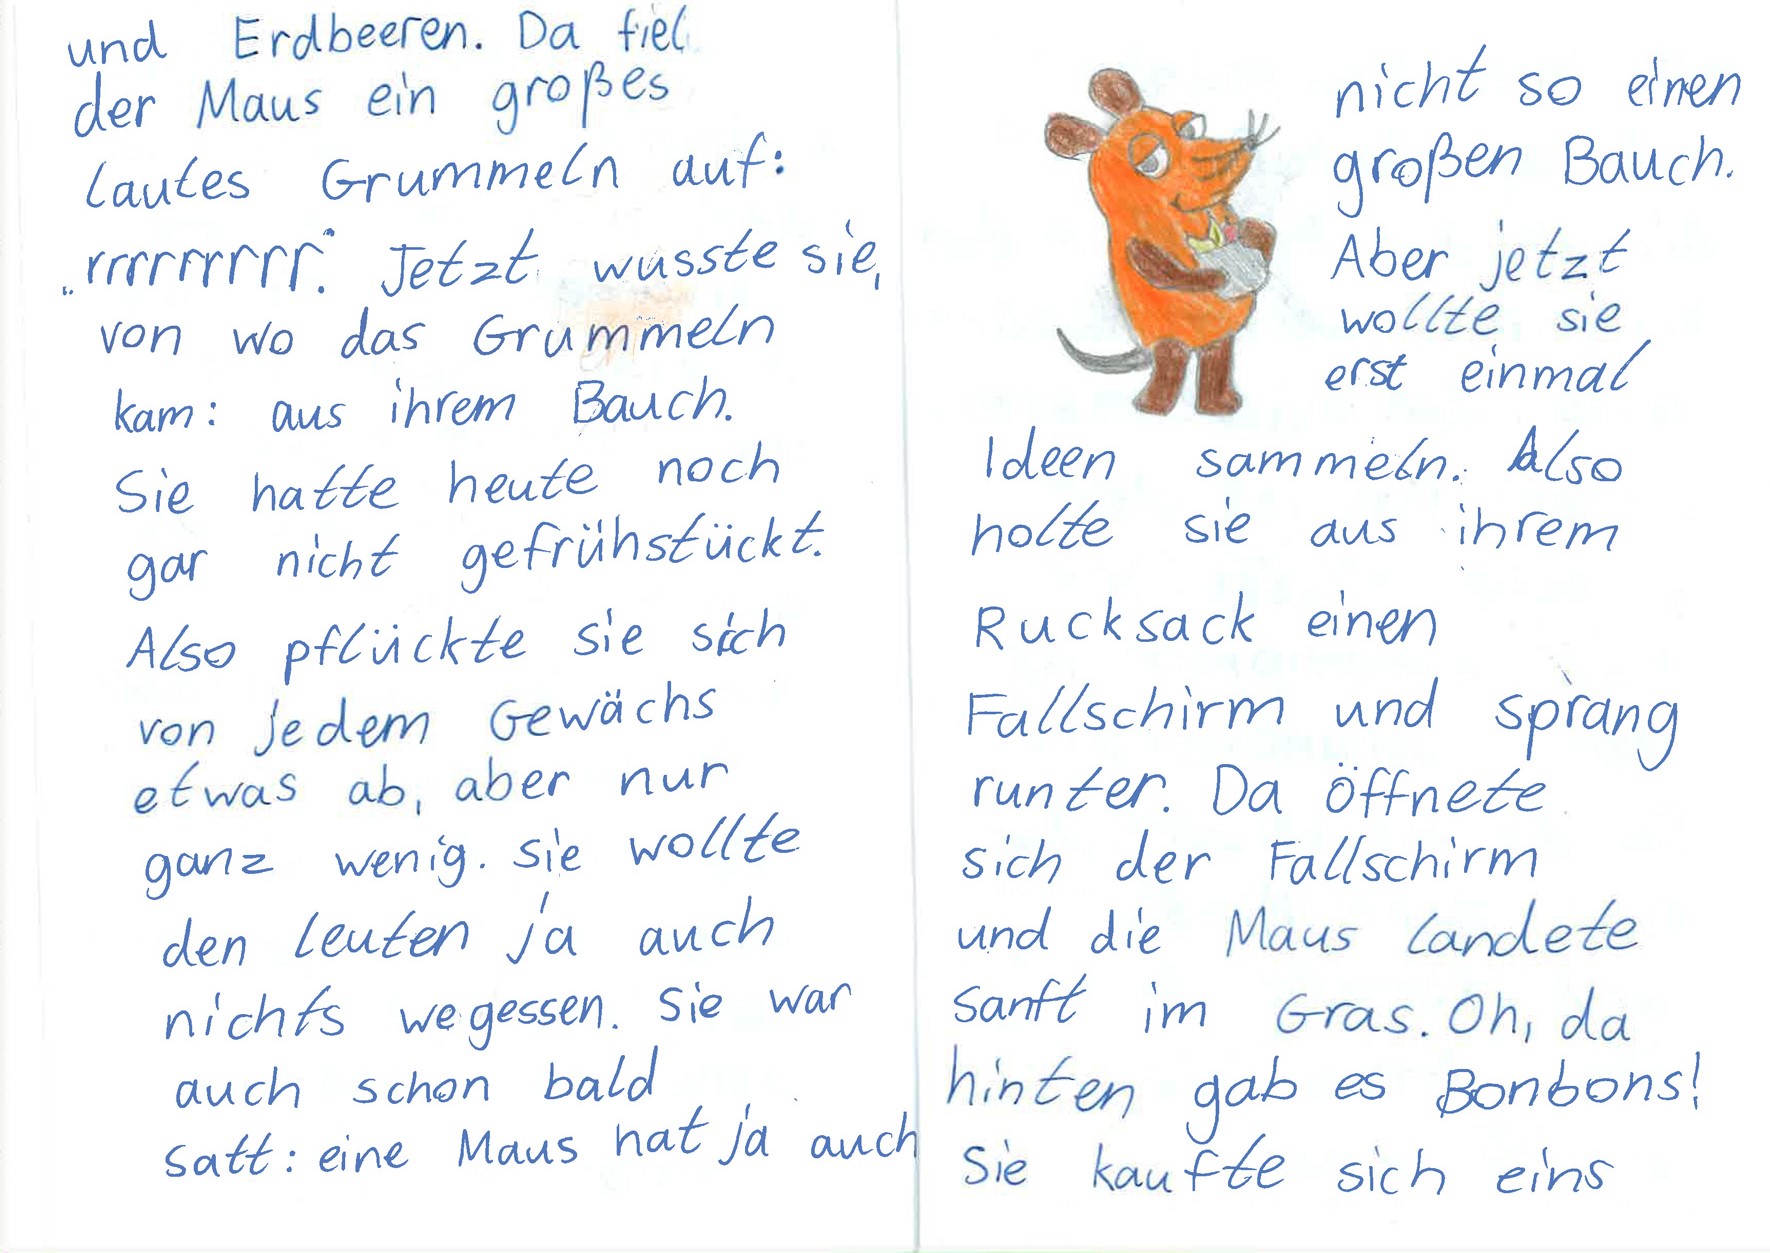 und Erdbeeren. Da fiel
der Maus ein großes
lautes Grummeln auf:
„rrrrrrrrr“. Jetzt wusste sie,
von wo das Grummeln
kam: aus ihrem Bauch.
Sie hatte heute noch
gar nicht gefrühstückt.
Also pflückte sie sich
von jedem Gewächs
etwas ab, aber nur
ganz wenig. Sie wollte
den leuten ja auch
nichts wegessen. Sie war
auch schon bald
satt: eine Maus hat ja auch
nicht so einen
großen Bauch.
Aber jetzt
wollte sie
erst einmal
Ideen sammeln. Also
holte sie aus ihrem
Rucksack einen
Fallschirm und sprang
runter. Da öffnete
sich der Fallschirm
und die Maus landete
sanft im Gras. Oh, da
hinten gab es Bonbons!
Sie kaufte sich eins